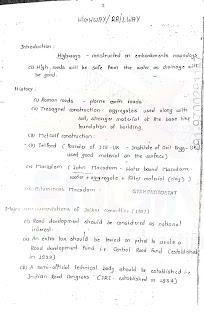 HIGHWAY/RAILWAY
Introduction:
Highways - constructed on embankments nowadays
(i) High roads will be safe from the water as drainage will
be good.
History:
(i) Roman roads - plains earth roads
(ii) Tresagnet construction - aggregates used along with
soil, stronger material at the base like
foundation of building.
(iii) Metcalf construction:
(iv) Telford (founder of ICE-UK - Institute of Civil Engg-UK
used good material on the surface)
(v) Macadam (John Macadam - Water bound Macadam
water + aggregate + filler material (clay))
(vi) Bituminous Macadam
Major recommendations of Jaykar committee (1927)
(i) Road development should be considered as national
interest.
(ii) An extra tax should be levied on petrol to create a
Road development fund i.e. Central Road fund (established
in 1929)
(iii) A semi-official technical body should be established i.e.
Indian Road Congress (IRC) established in 1934)